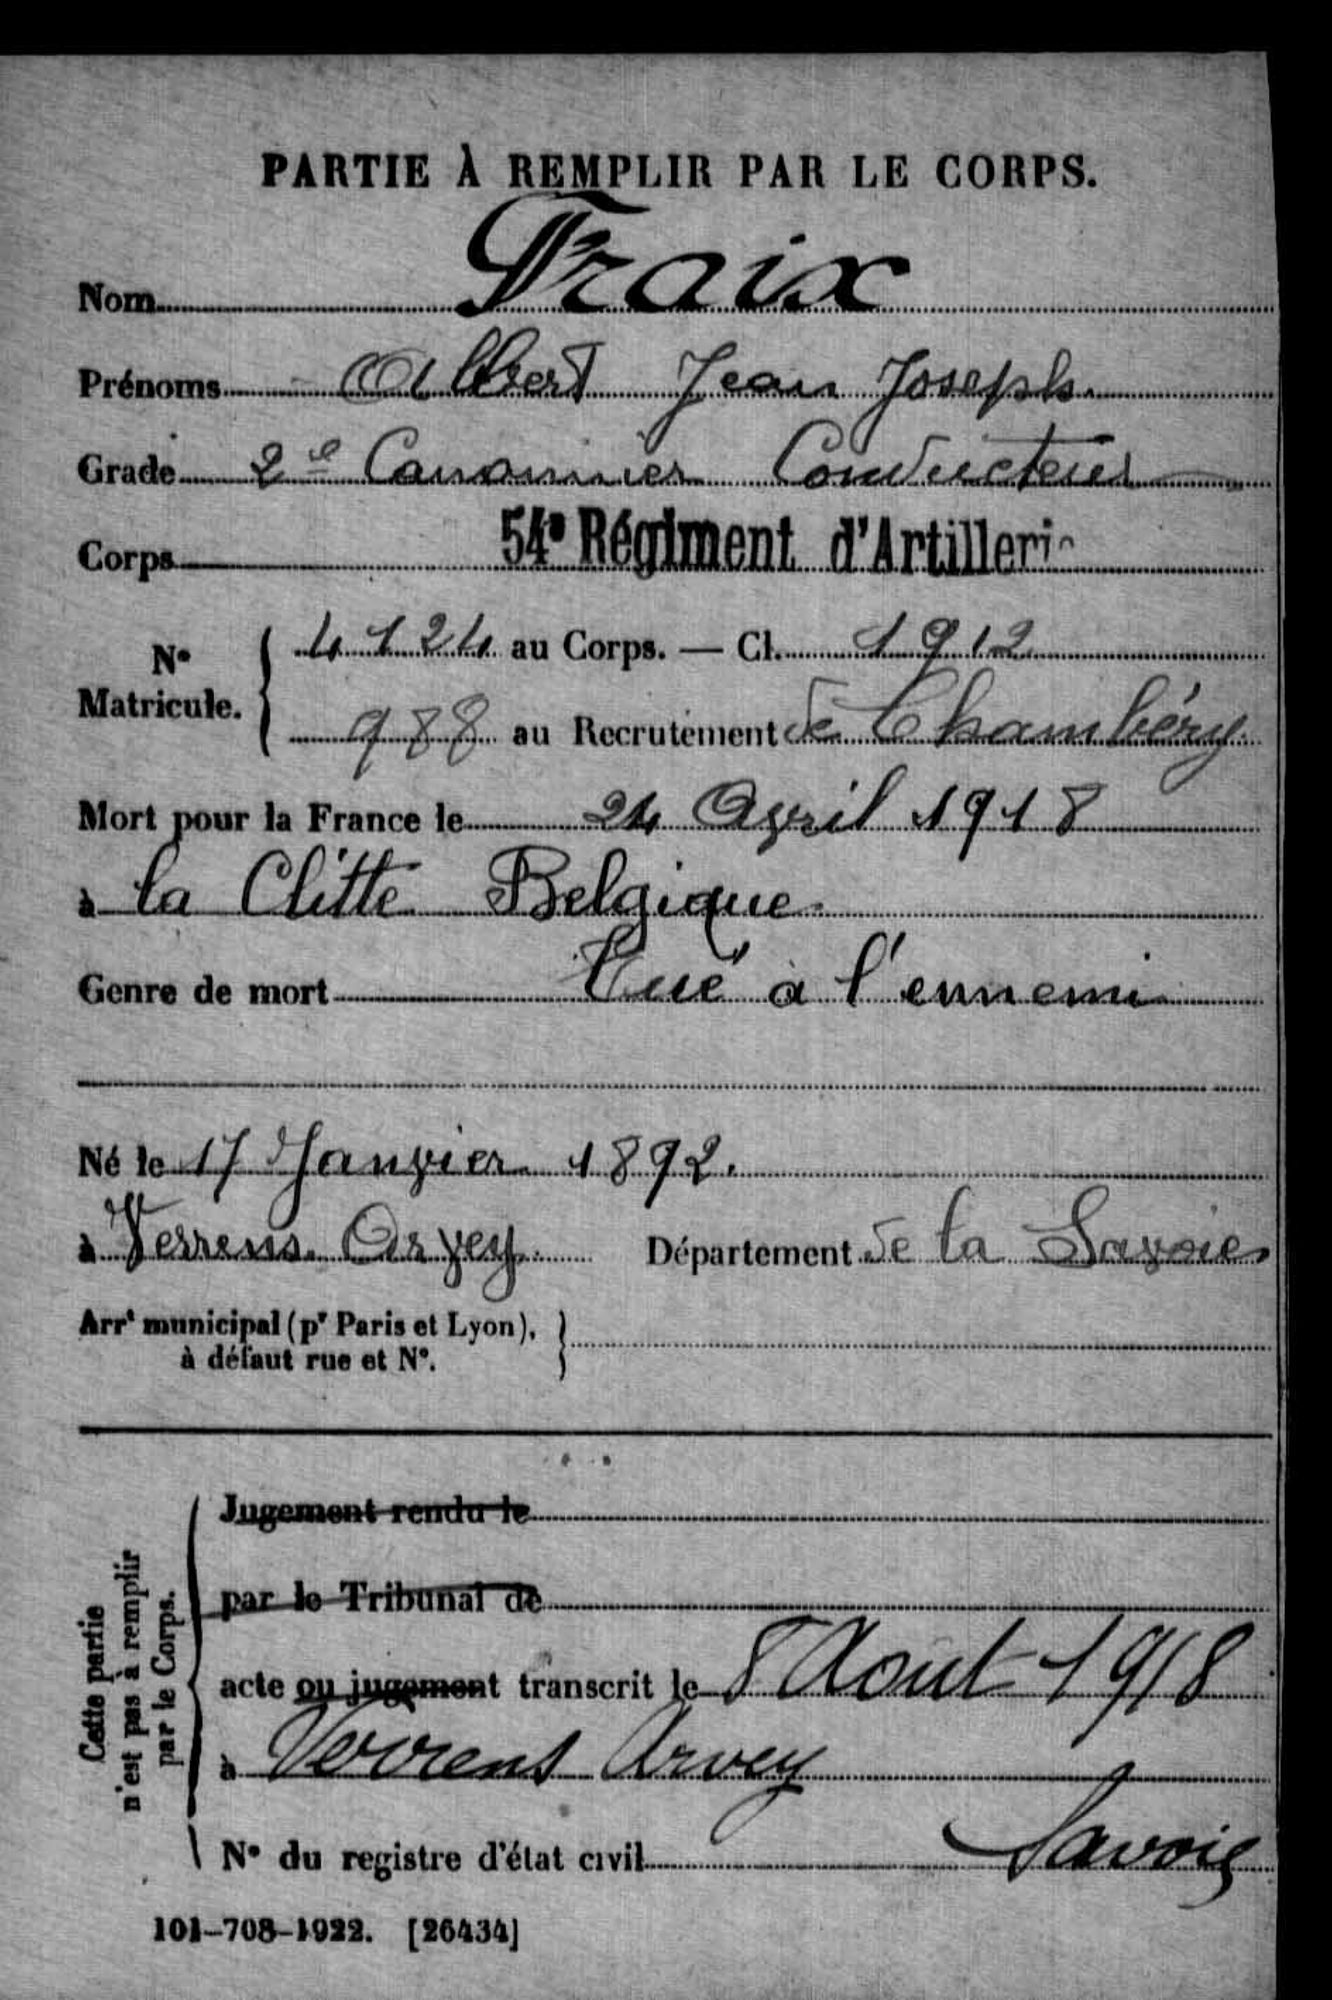 PARTIE À REMPLIR PAR LE CORPS.
Nom Fraix
Prénoms Albert Jean Joseph
Grade 2e Canonnier Conducteur
Corps 54e Régiment d'Artillerie
N° Matricule. 4124 au Corps. — Cl. 1912
988 au Recrutement de Chambéry
Mort pour la France le 24 Avril 1918
à la Clitte Belgique
Genre de mort Tué à l'ennemi
Né le 17 Janvier 1892.
à Verrens Arvey Département de la Savoie
Arrt municipal (pr Paris et Lyon),
à défaut rue et N°.
Cette partie
n'est pas à remplir
par le Corps.
Jugement rendu le
par le Tribunal de
acte ou jugement transcrit le 8 Aout 1918
à Verrens Arvey
N° du registre d'état civil Savoie
101-708-1922. [26434]